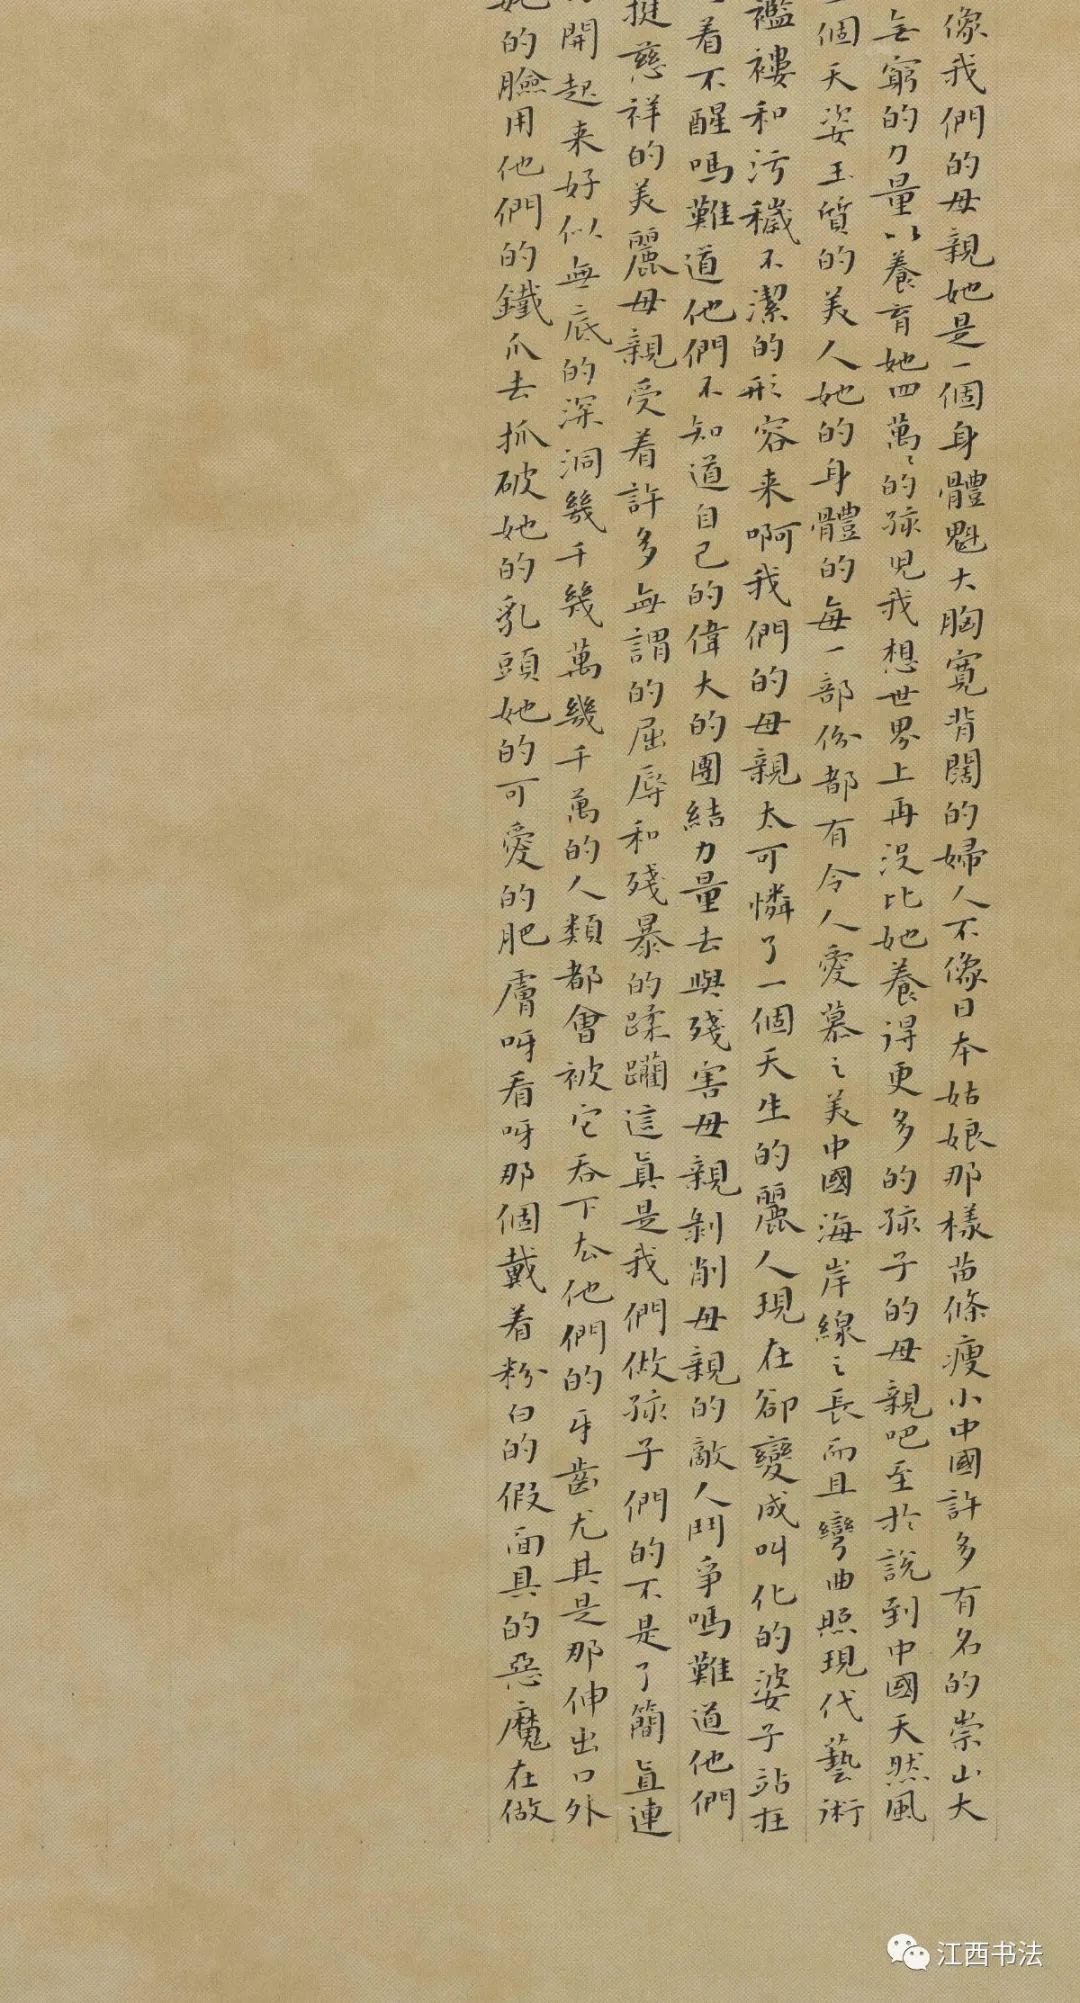 像我們的母親她是一個身體魁大胸寬背闊的婦人不像日本姑娘那樣苗條瘦小中國許多有名的崇山大
無窮的力量以養育她四萬々的孩児我想世界上再没比她養得更多的孩子的母親吧至於說到中國天然風
個天姿玉質的美人她的身體的每一部份都有令人愛慕之美中國海岸線之長而且彎曲照現代藝術
襤褸和污穢不潔的形容来啊我們的母親太可憐了一個天生的麗人現在卻變成叫化的婆子站在
着不醒嗎難道他們不知道自己的偉大的團結力量去與殘害母親剝削母親的敵人鬥爭嗎難道他們
挺慈祥的美麗母親受着許多無謂的屈辱和殘暴的蹂躪這真是我們做孩子們的不是了簡直連
開起来好似無底的深洞幾千幾萬幾千萬的人類都會被它吞下去他們的牙齒尤其是那伸出口外
她的臉用他們的鐵爪去抓破她的乳頭她的可愛的肥膚呀看呀那個戴着粉白的假面具的惡魔在做
江西书法